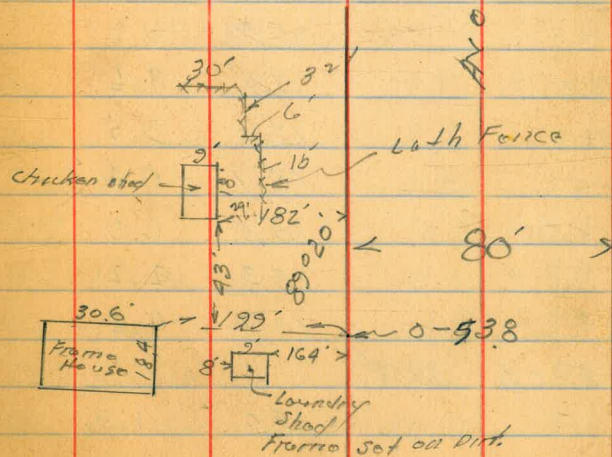 30'
32'
6'
16'
Lath Fence
9'
Chicken shed
18'
29'
182'
43'
89°20'
80'
30.6'
199'
0-538
Frame
House
18.4
9'
8'
164'
Laundry
Shed
Frame Set on Dirt.